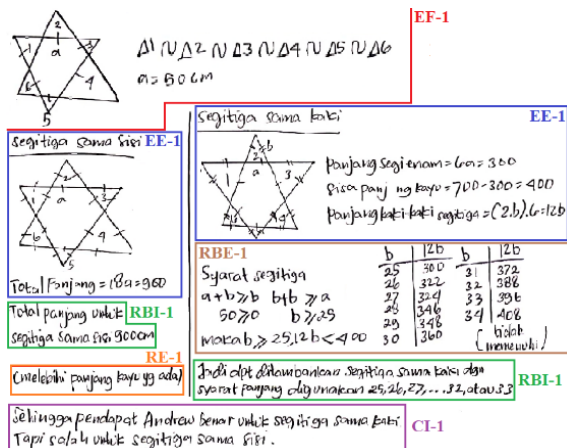 EF-1
2
1
a
3
6
4
5
Δ1 ~ Δ2 ~ Δ3 ~ Δ4 ~ Δ5 ~ Δ6
a = 50 cm
segitiga sama sisi EE-1
2
1
a
3
6
4
5
Total Panjang = 18a = 900
Total panjang untuk RBI-1
segitiga sama sisi 900cm
RE-1
(melebihi panjang kayu yg ada)
segitiga sama kaki EE-1
b
2
1
a
3
Panjang segienam = 6a = 300
Sisa panjang kayu = 700 - 300 = 400
Panjang kaki-kaki segitiga = (2.b).6 = 12b
RBE-1
Syarat segitiga
a + b ≥ b b + b ≥ a
50 ≥ 0 b ≥ 25
maka b ≥ 25, 12b < 400
b 12b b 12b
25 300 31 372
26 322 32 388
27 324 33 396
28 346 34 408
29 348 (tidak
30 360 memenuhi)
Jadi dpt ditambahkan segitiga sama kaki dgn
syarat panjang digunakan 25, 26, 27, ... 32, atau 33 RBI-1
Sehingga pendapat Andrew benar untuk segitiga sama kaki CI-1
Tapi salah untuk segitiga sama sisi.